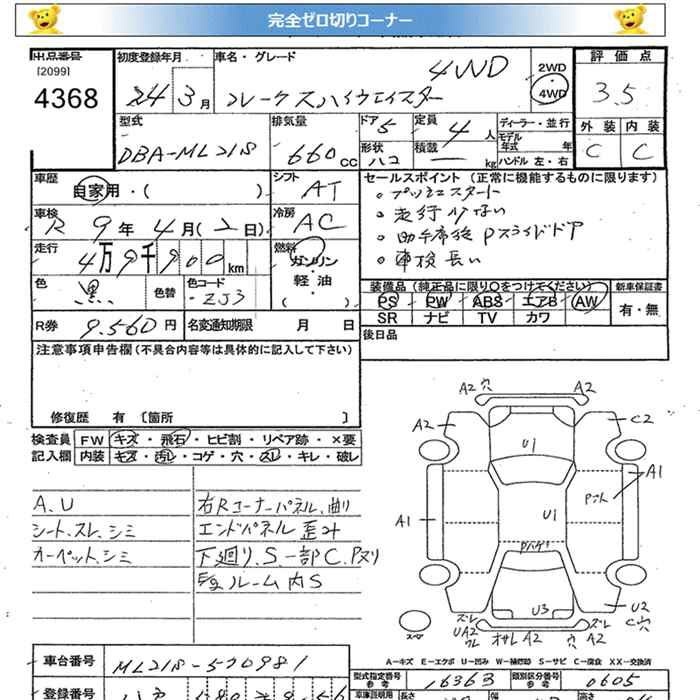 完全ゼロ切りコーナー
出品番号
[2099]
4368
初度登録年月
24 3月
車名・グレード
4WD
2WD
4WD
評価点
3.5
外装 内装
C C
型式
DBA-ML21S
排気量
660cc
ドア 5
形状 ハコ
定員 4 人
積載 ー kg
ディーラー・並行
モデル年式 年
ハンドル 左・右
車歴
自家用・( )
シフト AT
車検
R 9年 4月(2日)
冷房 AC
走行
4万9千900km
燃料
ガソリン・軽油・( )
色 黒
色替
色コード
ZJ3
R券 9.560円
名変通知期限 月 日
セールスポイント(正常に機能するものに限ります)
・プッシュスタート
・走行少ない
・助手席後 Pスライドドア
・車検長い
装備品(純正品に限り〇をつけてください)
新車保証書
PS PW ABS エアB AW
有・無
SR ナビ TV カワ
後日品
注意事項申告欄(不具合内容等は具体的に記入して下さい)
修復歴 有 〔箇所 〕
検査員記入欄
FW キズ・飛石・ヒビ割・リペア跡・×要
内装 キズ・汚レ・コゲ・穴・スレ・キレ・破レ
A.U
シート.スレ.シミ
カーペット.シミ
右Rコーナーパネル.曲り
エンドパネル 歪み
下廻り.S.一部C.Pヌリ
ルーム内S
A2 穴 A2
A2 C2
U1
A1 A1
U1
U3 U2
C穴
ズレ
UA2
ワレ
A2 穴 A2
ズレ
スペア
A-キズ E-エクボ U-凹み W-補修跡 S-サビ C-腐食 XX-交換済
車台番号
ML21S-520981
登録番号
型式指定番号
参考
16363
類別区分番号
参考
0605